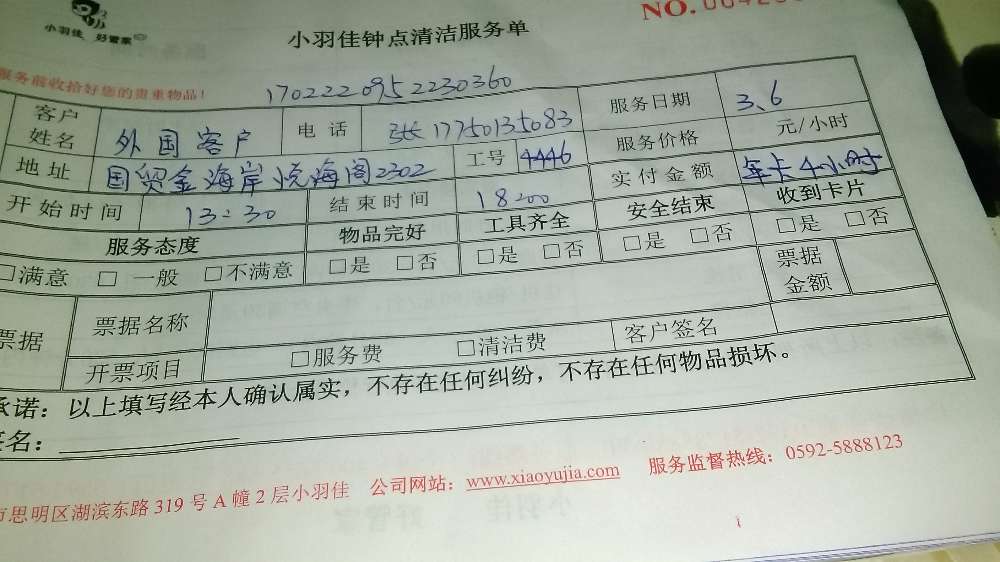 小羽佳 好管家
小羽佳钟点清洁服务单
NO.
服务前收拾好您的贵重物品！
1702220952230360
客户姓名 外国客户 电话 张17750135083 服务日期 3、6
地址 国贸金海岸悦海阁2302 工号 4446 服务价格 元/小时
开始时间 13:30 结束时间 18:00 实付金额 年卡4小时
服务态度 物品完好 工具齐全 安全结束 收到卡片
□满意 □一般 □不满意 □是 □否 □是 □否 □是 □否 □是 □否
票据 票据名称 票据金额
开票项目 □服务费 □清洁费 客户签名
承诺：以上填写经本人确认属实，不存在任何纠纷，不存在任何物品损坏。
签名：
市思明区湖滨东路319号A幢2层小羽佳 公司网站：www.xiaoyujia.com 服务监督热线：0592-5888123